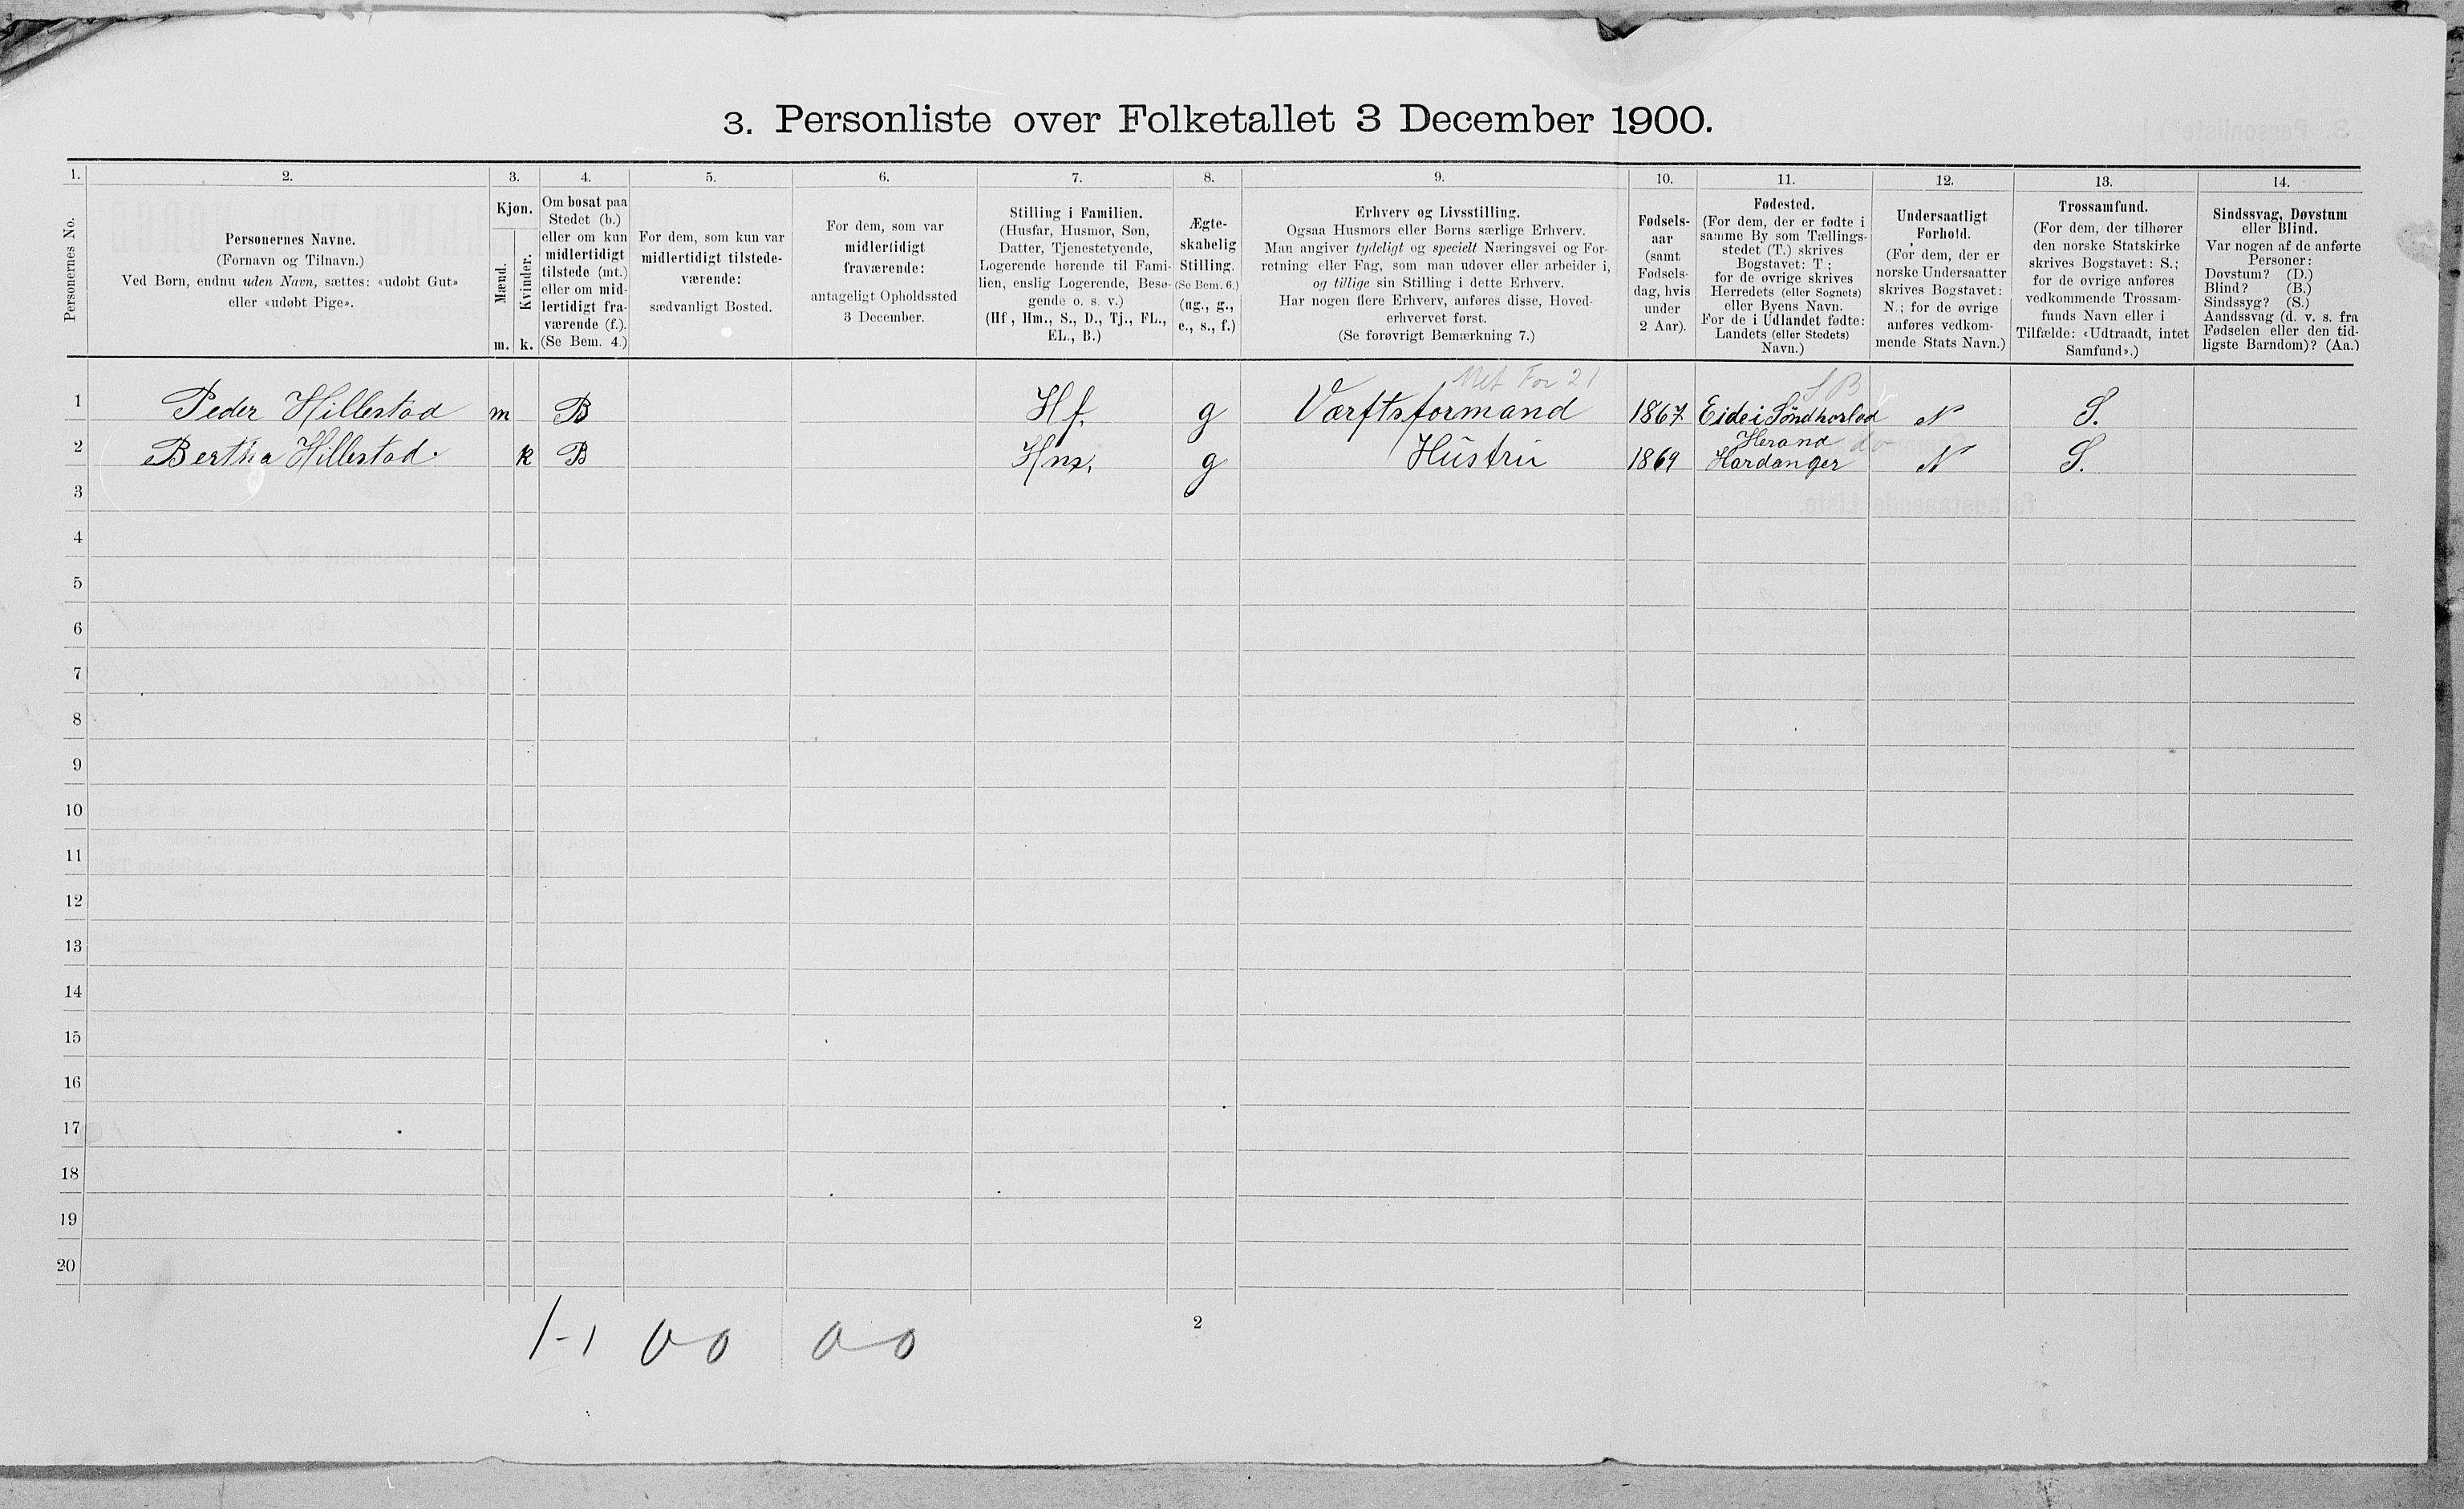 3. Personliste over Folketallet 3 December 1900.
1. 2. 3. 4. 5. 6. 7. 8. 9. 10. 11. 12. 13. 14.
Personernes No.
Personernes Navne.
(Fornavn og Tilnavn.)
Ved Børn, endnu uden Navn, sættes: «udøbt Gut»
eller «udøbt Pige».
Kjøn.
Mænd.
Kvinder.
m. k.
Om bosat paa
Stedet (b.)
eller om kun
midlertidigt
tilstede (mt.)
eller om mid-
lertidigt fra-
værende (f.).
(Se Bem. 4.)
For dem, som kun var
midlertidigt tilstede-
værende:
sædvanligt Bosted.
For dem, som var
midlertidigt
fraværende:
antageligt Opholdssted
3 December.
Stilling i Familien.
(Husfar, Husmor, Søn,
Datter, Tjenestetyende,
Logerende hørende til Fami-
lien, enslig Logerende, Besø-
gende o. s. v.)
(Hf., Hm., S., D., Tj., FL.,
EL., B.)
Ægte-
skabelig
Stilling.
(Se Bem. 6.)
(ug., g.,
e., s., f.)
Erhverv og Livsstilling.
Ogsaa Husmors eller Børns særlige Erhverv.
Man angiver tydeligt og specielt Næringsvei og For-
retning eller Fag, som man udøver eller arbeider i,
og tillige sin Stilling i dette Erhverv.
Har nogen flere Erhverv, anføres disse, Hoved-
erhvervet først.
(Se forøvrigt Bemærkning 7.)
Fødsels-
aar
(samt
Fødsels-
dag, hvis
under
2 Aar).
Fødested.
(For dem, der er fødte i
samme By som Tællings-
stedet (T.) skrives
Bogstavet: T;
for de øvrige skrives
Herredets (eller Sognets)
eller Byens Navn.
For de i Udlandet fødte:
Landets (eller Stedets)
Navn.)
Undersaatligt
Forhold.
(For dem, der er
norske Undersaatter
skrives Bogstavet:
N.; for de øvrige
anføres vedkom-
mende Stats Navn.)
Trossamfund.
(For dem, der tilhører
den norske Statskirke
skrives Bogstavet: S.;
for de øvrige anføres
vedkommende Trossam-
funds Navn eller i
Tilfælde: «Udtraadt, intet
Samfund».)
Sindssvag, Døvstum
eller Blind.
Var nogen af de anførte
Personer:
Døvstum? (D.)
Blind? (B.)
Sindssyg? (S.)
Aandssvag (d. v. s. fra
Fødselen eller den tid-
ligste Barndom)? (Aa.)
Met For 21 SB
1 Peder Hillestad m B Hf. g Værftsformand 1867 Eide i Søndhorlad N S.
Herand do
2 Bertha Hillestad. k B Hm. g Hustru 1869 Hardanger N S.
3
4
5
6
7
8
9
10
11
12
13
14
15
16
17
18
19
20
1-1 00 00
2